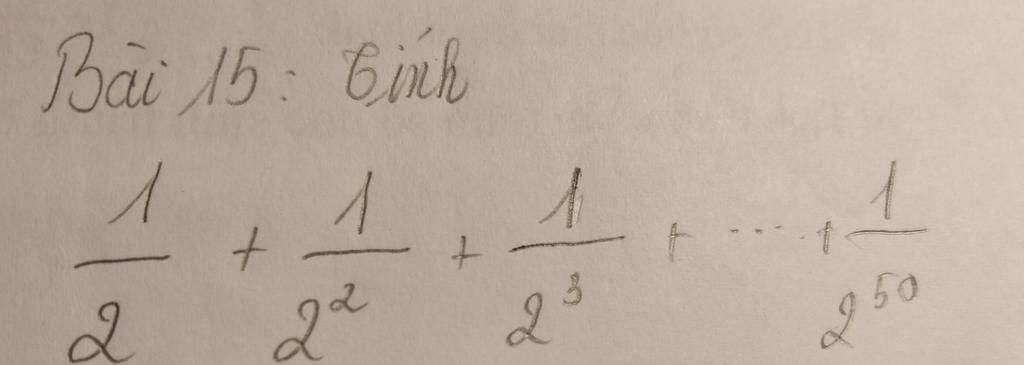 Bài 15: Tính
1/2 + 1/2² + 1/2³ + ..... + 1/2⁵⁰